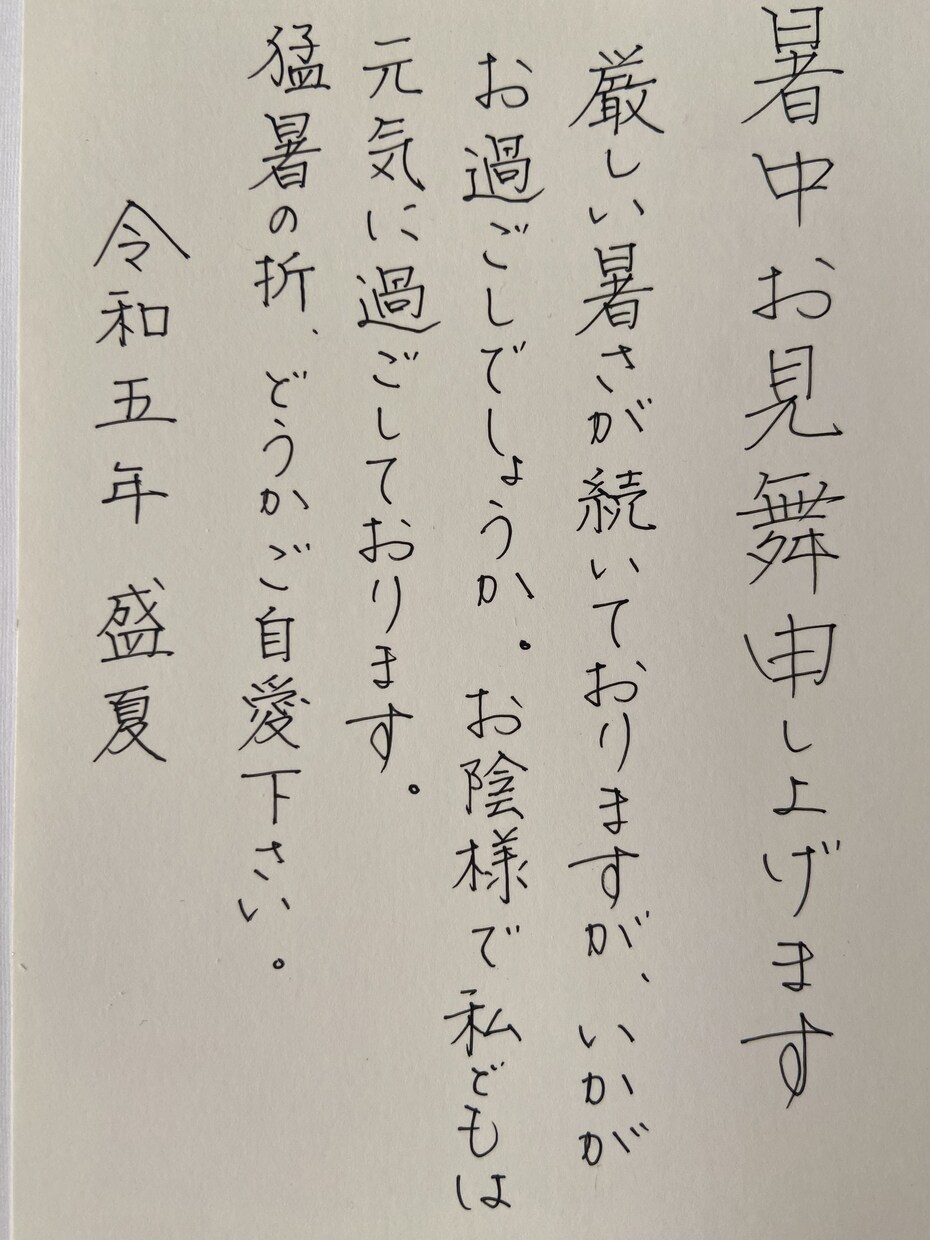 暑中お見舞申し上げます
厳しい暑さが続いておりますが、いかが
お過ごしでしょうか。お陰様で私どもは
元気に過ごしております。
猛暑の折、どうかご自愛下さい。
令和五年 盛夏